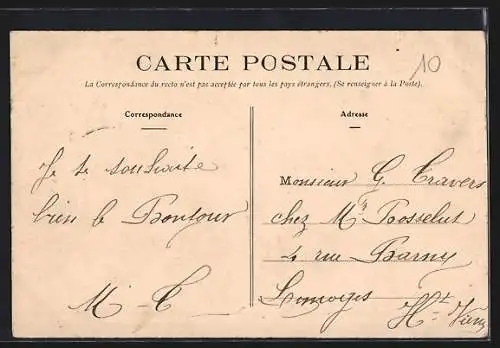 CARTE POSTALE
10
La Correspondance du recto n'est pas acceptée par tous les pays étrangers. (Se renseigner à la Poste).
Correspondance
Je te souhaite
bien le Bonjour
M. T
Adresse
Monsieur G. Travers
chez Mr Bosselut
4 rue Barny
Limoges
Hte Vienne